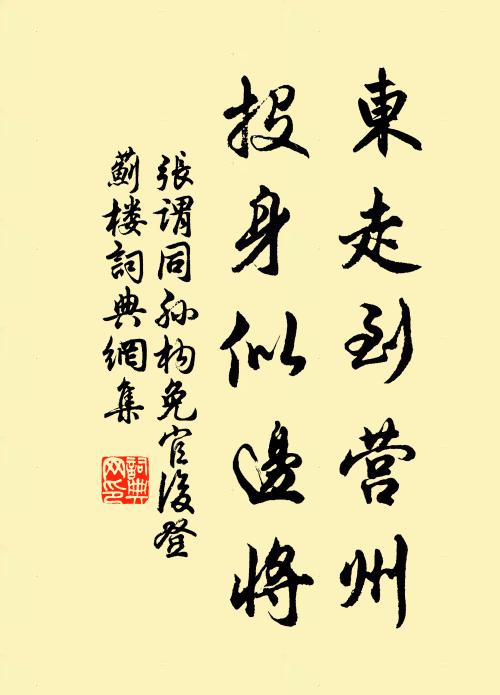 東走到营州
投身似邊將
張謂同孙构免官後登
薊楼詞典網集
詞典网印